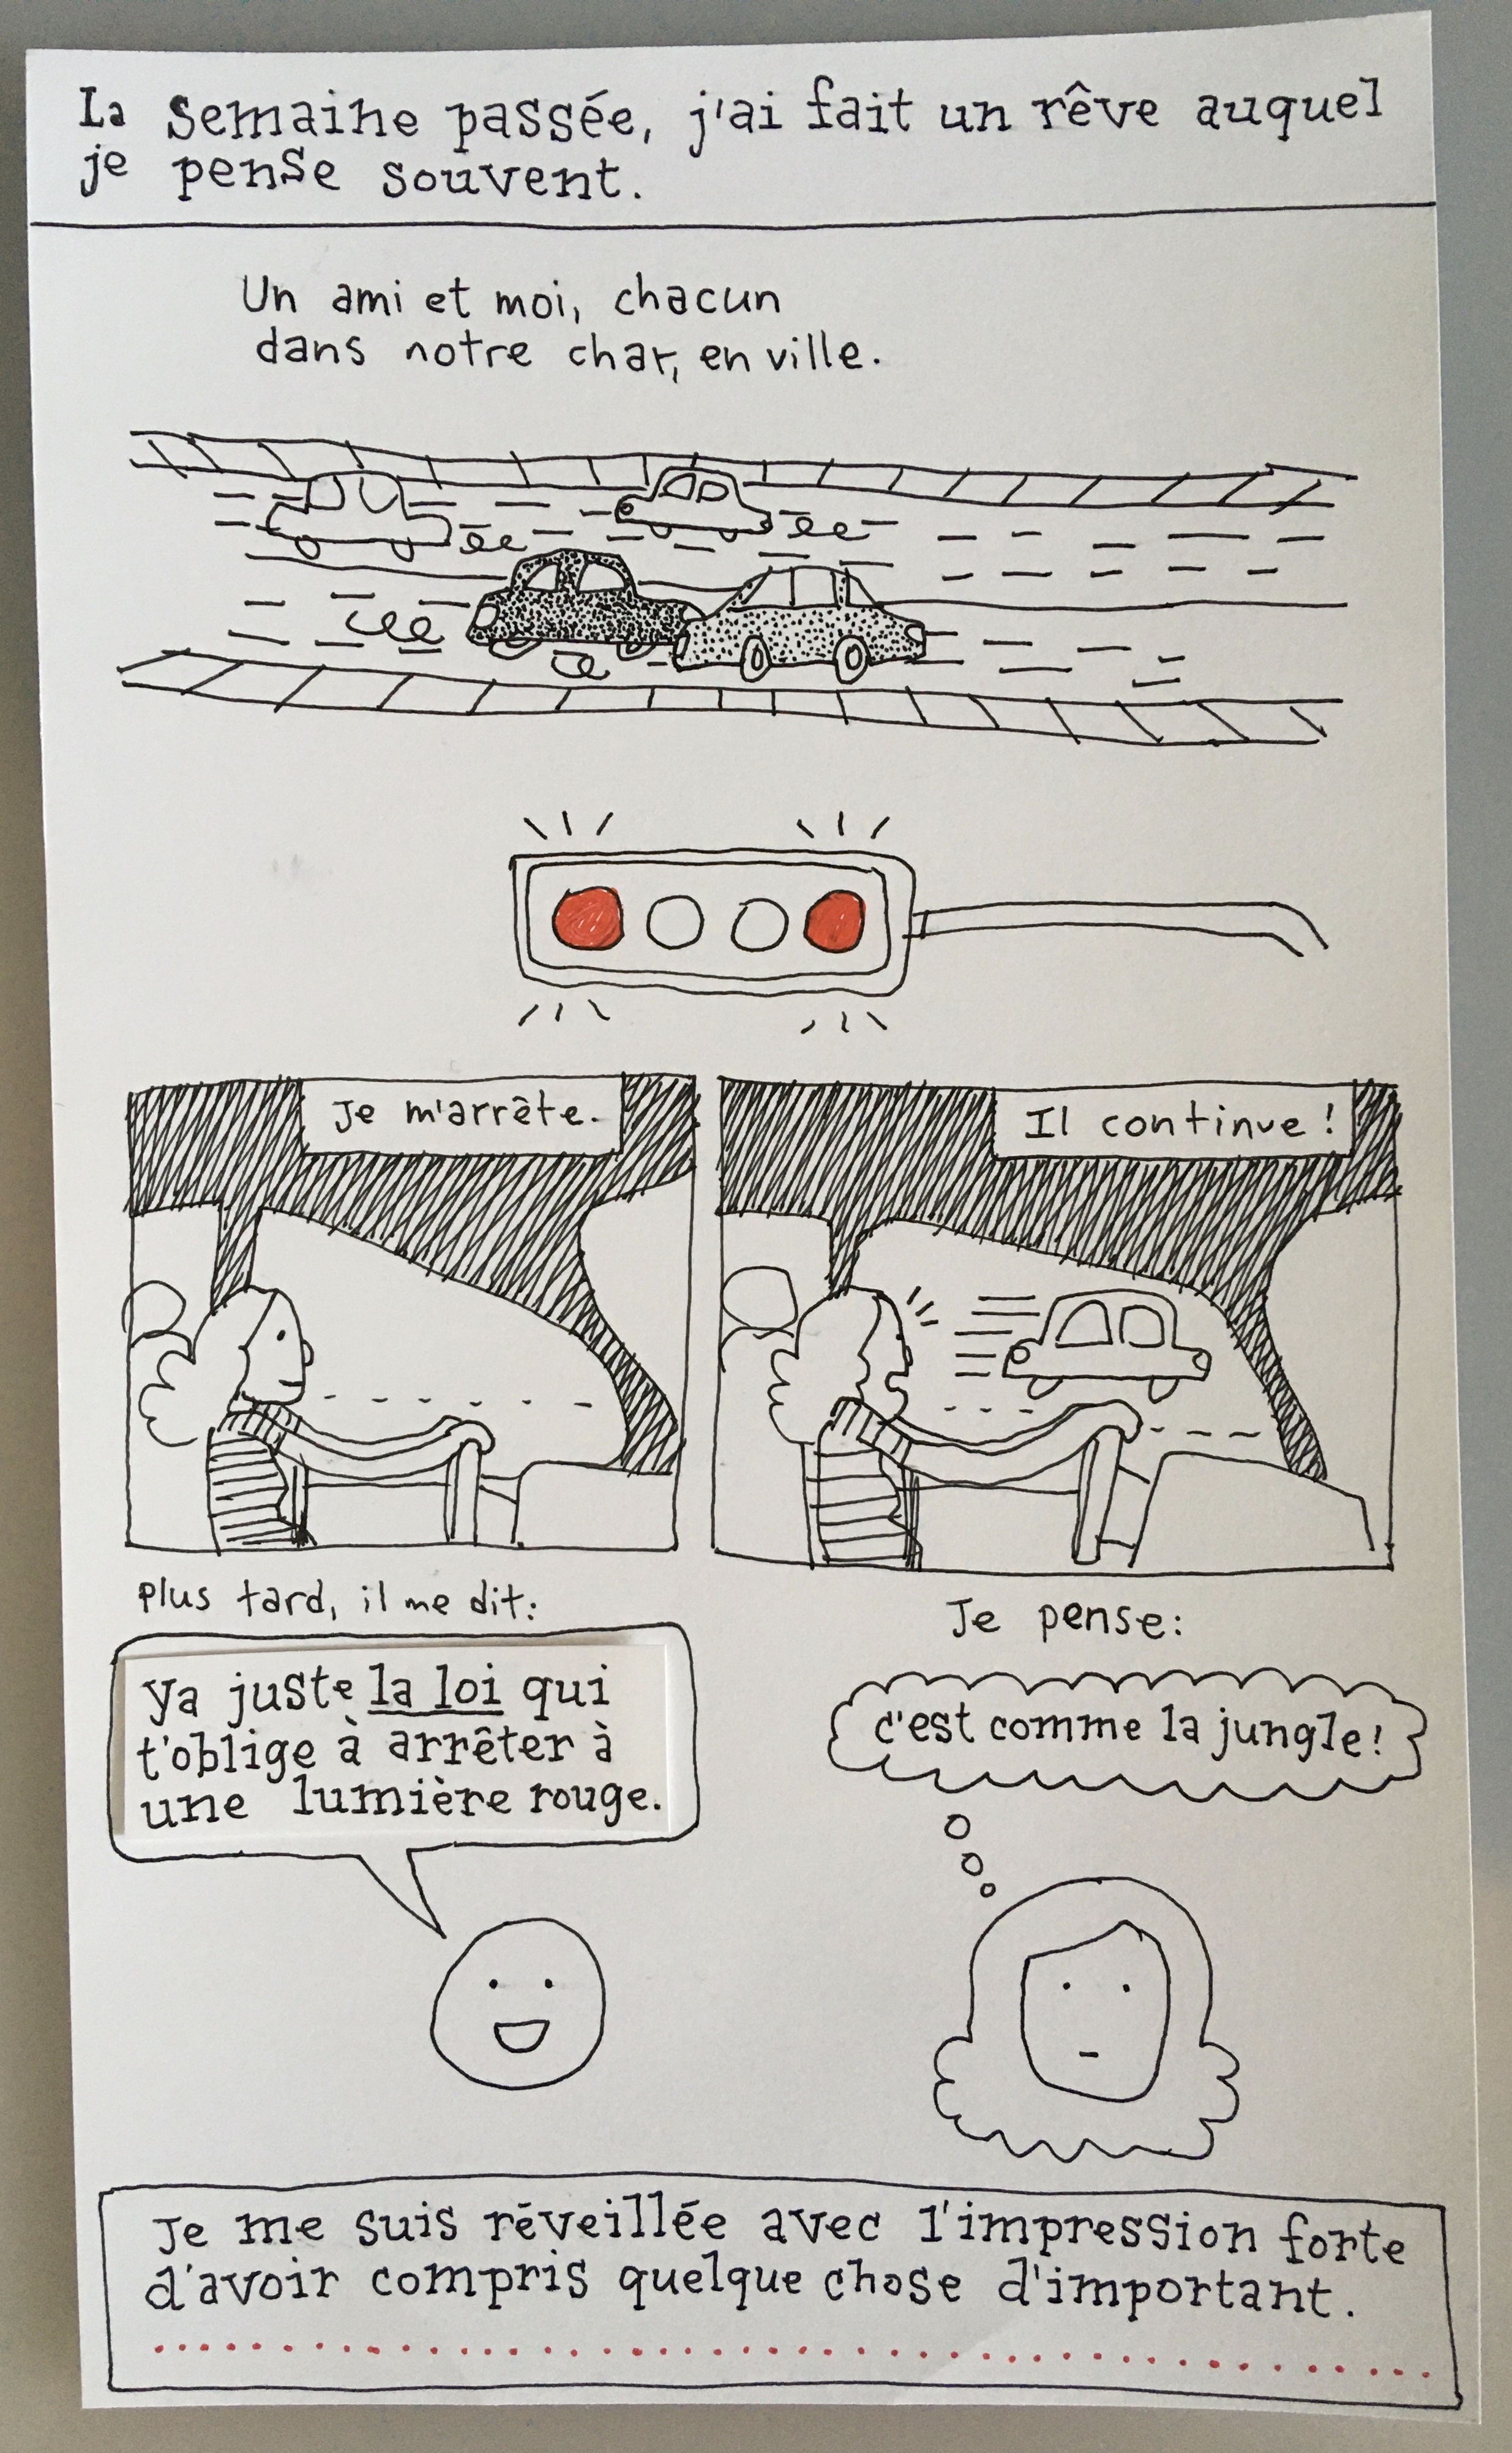 La semaine passée, j'ai fait un rêve auquel
je pense souvent.
Un ami et moi, chacun
dans notre char, en ville.
Je m'arrête.
Il continue!
Plus tard, il me dit:
ya juste la loi qui
t'oblige à arrêter à
une lumière rouge.
Je pense:
c'est comme la jungle!
Je me suis réveillée avec l'impression forte
d'avoir compris quelque chose d'important.